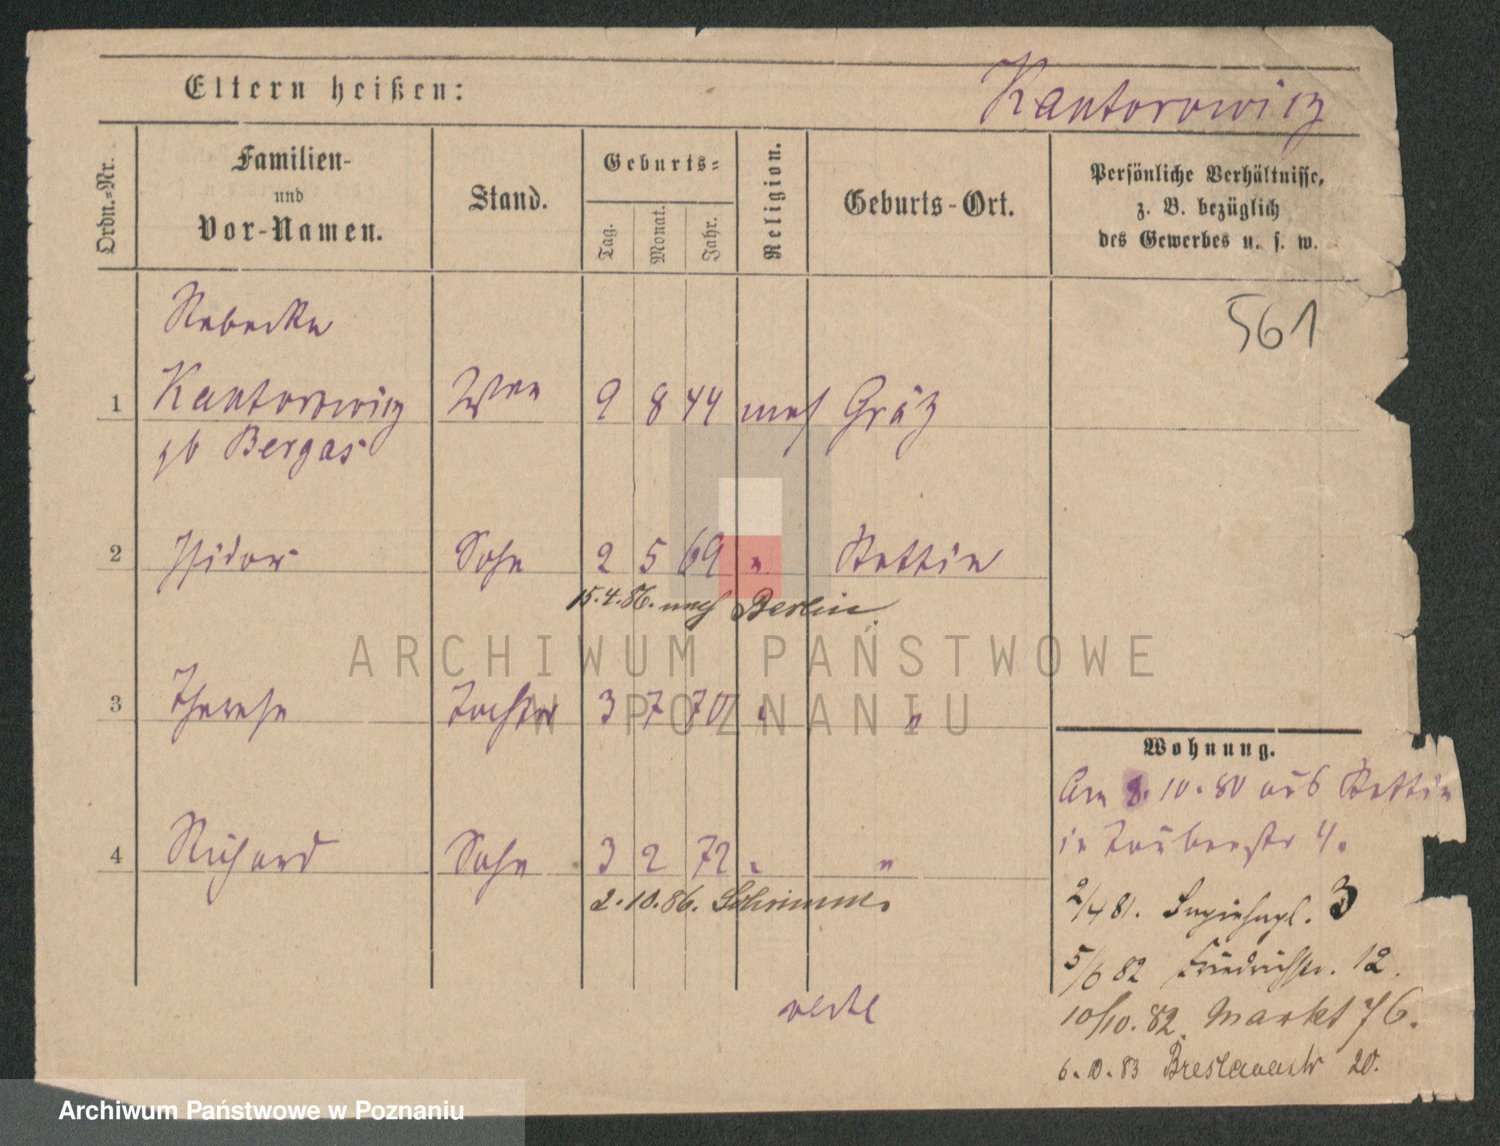 Eltern heißen:
Kantorowicz
Ordn.-Nr.
Familien-
und
Vor-Namen.
Stand.
Geburts-
Tag.
Monat.
Jahr.
Religion.
Geburts-Ort.
Persönliche Verhältnisse,
z. B. bezüglich
des Gewerbes u. s. w.
561
Rebecka
1 Kantorowicz Wwe 9 8 44 mos Grätz
gb Bergas
2 Isidor Sohn 2 5 69 " Stettin
15.4.86. nach Berlin.
3 Therese Tochter 3 7 70 " "
4 Richard Sohn 3 2 72 " "
2.10.86. Schrimm.
verte
Wohnung.
Am 8.10.80 aus Stettin
in Taubenstr 4.
2/4 81. Sapiehapl. 3
5/6 82 Friedrichstr. 12.
10/10. 82. Markt 76.
6.10.83 Breslauerstr 20.
ARCHIWUM PAŃSTWOWE
W POZNANIU
Archiwum Państwowe w Poznaniu